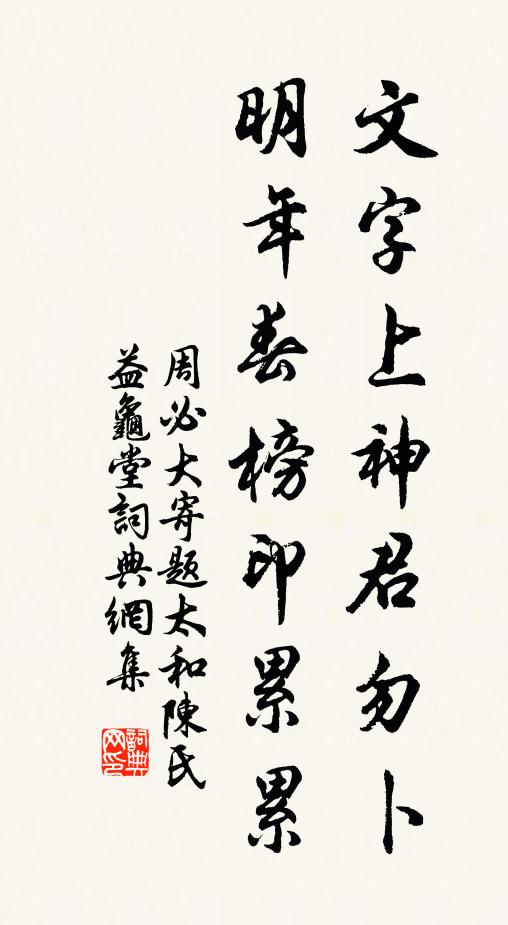 文字上神君勿卜
明年春榜印累累
周必大寄题太和陳氏
益龜堂詞典網集
詞典
网印